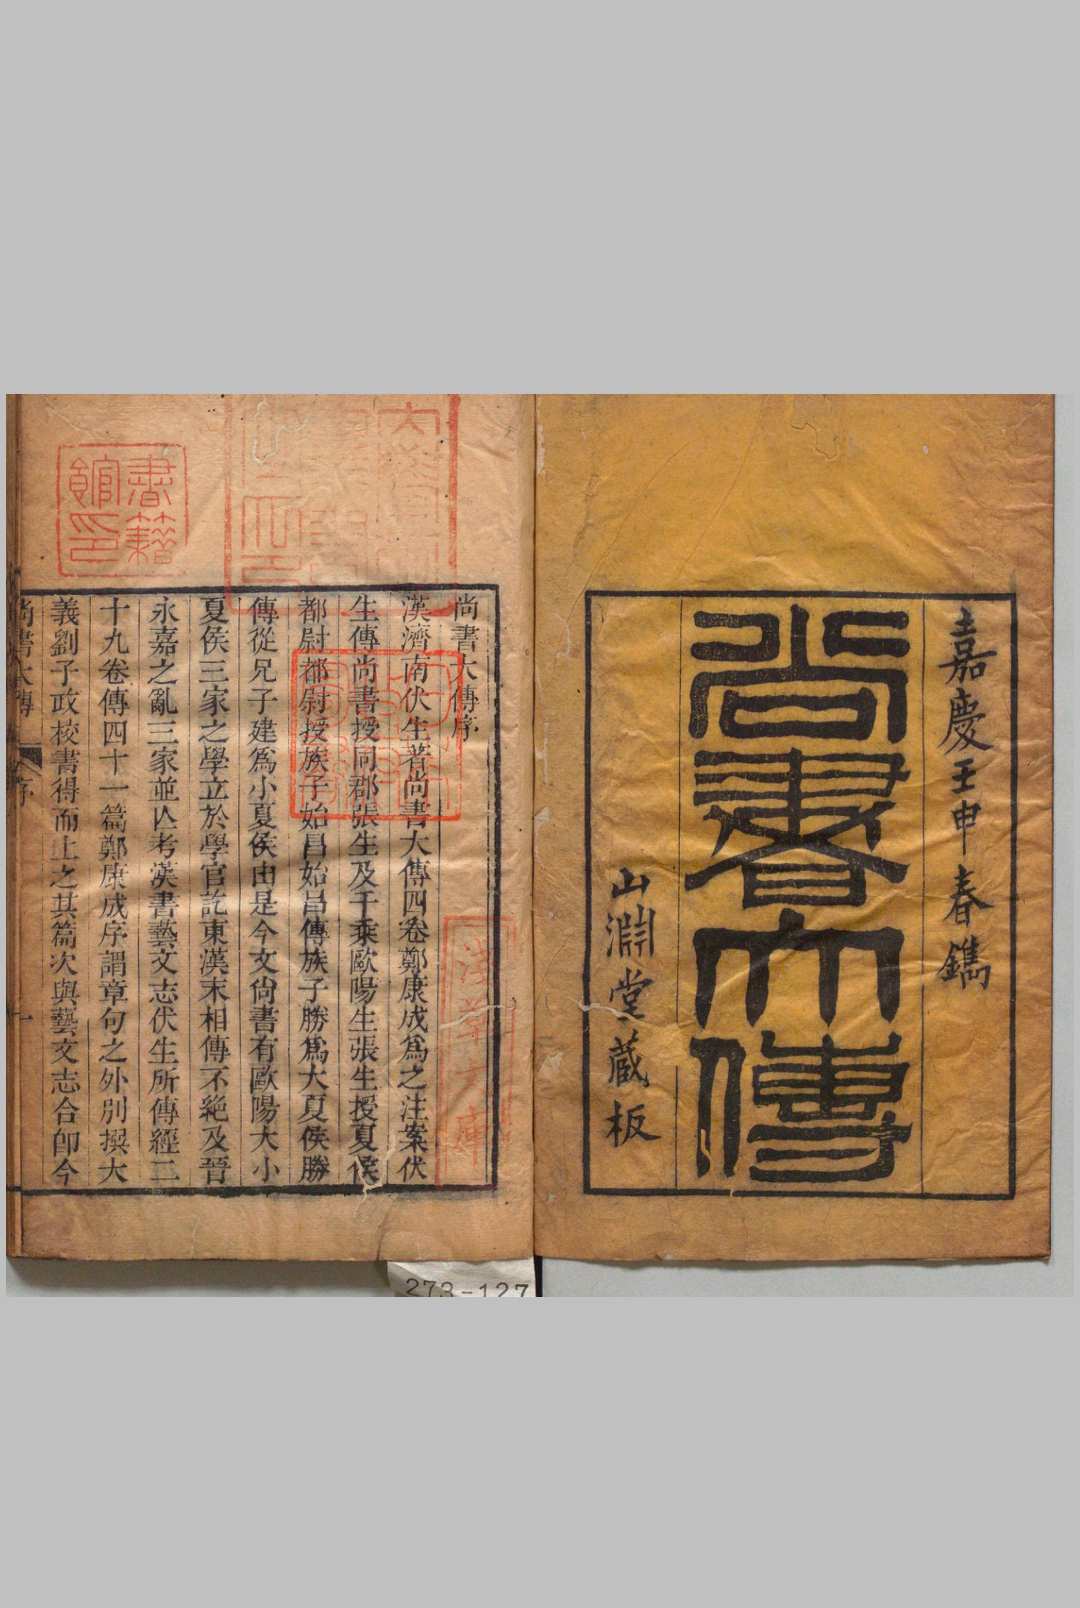 嘉慶壬申春鐫
尚書大傳
山淵堂藏板
尚書大傳序
漢濟南伏生著尚書大傳四卷鄭康成爲之注案伏
生傳尚書授同郡張生及千乘歐陽生張生授夏侯
都尉都尉授族子始昌始昌傳族子勝爲大夏侯勝
傳從兄子建爲小夏侯由是今文尚書有歐陽大小
夏侯三家之學立於學官訖東漢末相傳不絶及晉
永嘉之亂三家並亾考漢書藝文志伏生所傳經二
十九卷傳四十一篇鄭康成序謂章句之外別撰大
義劉子政校書得而上之其篇次與藝文志合卽今
尚書大傳
序
一
書籍
館印
淺草文庫
273-127